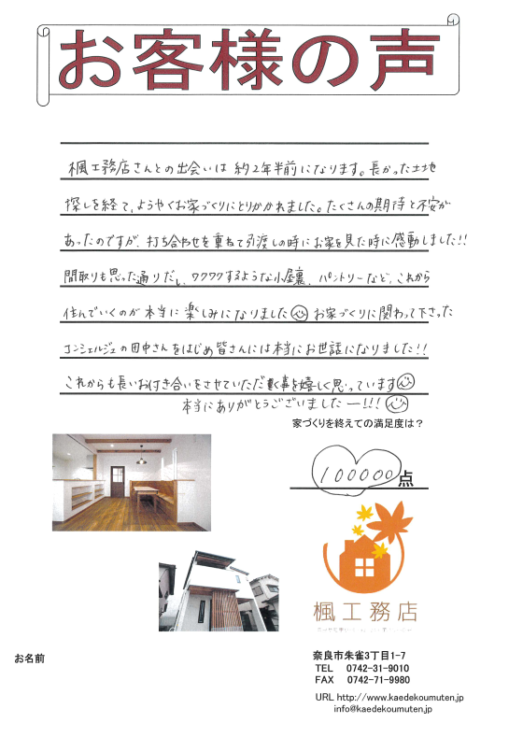 お客様の声
楓工務店さんとの出会いは約2年半前になります。長かった土地
探しを経て、ようやくお家づくりにとりかかれました。たくさんの期待と不安が
あったのですが、打ち合わせを重ねて引渡しの時にお家を見た時に感動しました!!
間取りも思った通りだと、ワクワクするような小屋裏、パントリーなど、これから
住んでいくのが本当に楽しみになりました お家づくりに関わって下さった
コンシェルジュの田中さんをはじめ皆さんには本当にお世話になりました!!
これからも長いお付き合いをさせていただく事を嬉しく思っています
本当にありがとうございましたー!!!
家づくりを終えての満足度は？
100000点
楓工務店
お名前
奈良市朱雀3丁目1-7
TEL 0742-31-9010
FAX 0742-71-9980
URL http://www.kaedekoumuten.jp
info@kaedekoumuten.jp